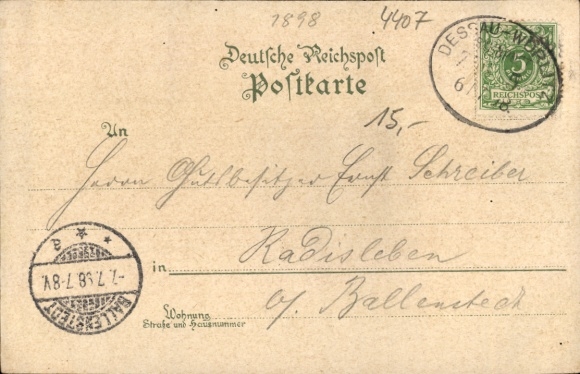 1898
4407
Deutsche Reichspost
Postkarte
DESSAU-WÖRLITZ
5
REICHSPOST
15,-
An
Herrn Gutsbesitzer Ernst Schreiber
in Radisleben
o/ Ballenstedt
Wohnung
Straße und Hausnummer
a
-7.7.98.7-8V.
BALLENSTEDT